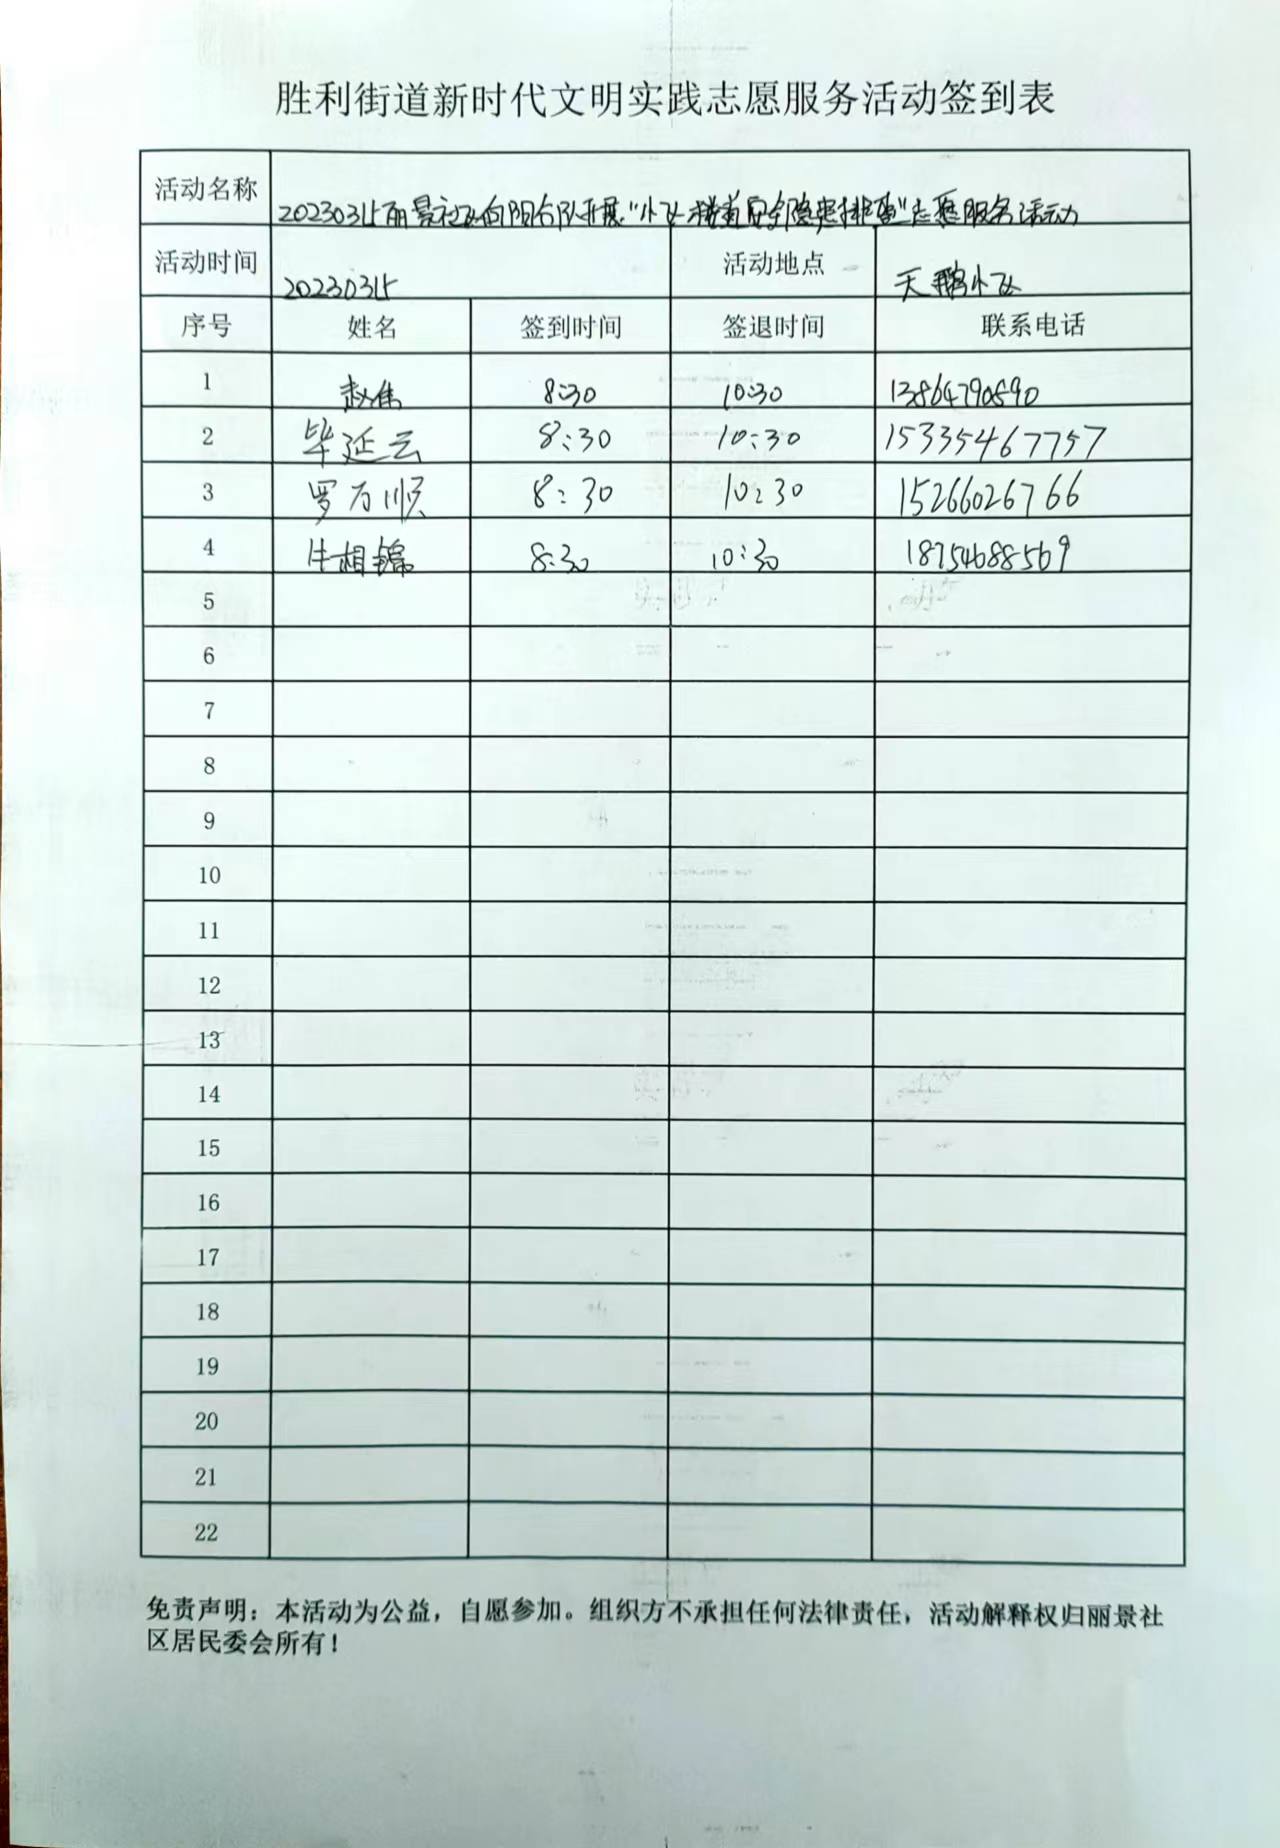 胜利街道新时代文明实践志愿服务活动签到表
活动名称 20230315丽景社区向阳合队开展“小区楼道安全隐患排查”志愿服务活动
活动时间 20230315 活动地点 天鹅小区
序号 姓名 签到时间 签退时间 联系电话
1 赵伟 8:30 10:30 13864790890
2 毕延云 8:30 10:30 15335467757
3 罗万顺 8:30 10:30 15266026766
4 牛相锦 8:30 10:30 18754688569
5
6
7
8
9
10
11
12
13
14
15
16
17
18
19
20
21
22
免责声明：本活动为公益，自愿参加。组织方不承担任何法律责任，活动解释权归丽景社
区居民委会所有！